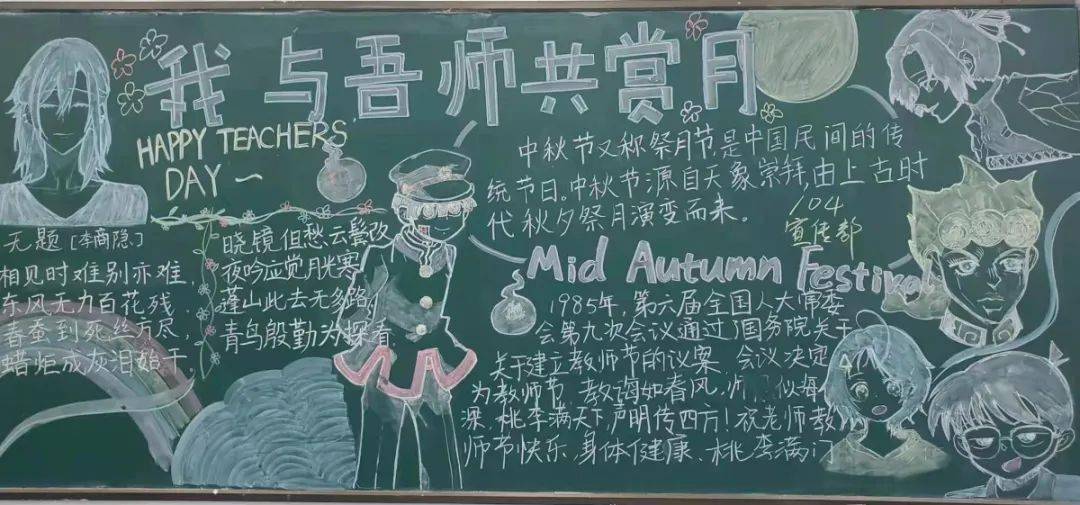 我与吾师共赏月
HAPPY TEACHERS'
DAY ~
无题 [李商隐]
相见时难别亦难,
东风无力百花残.
春蚕到死丝方尽,
蜡炬成灰泪始干.
晓镜但愁云鬓改
夜吟应觉月光寒
蓬山此去无多路
青鸟殷勤为探看.
中秋节又称祭月节,是中国民间的传
统节日。中秋节源自天象崇拜,由上古时
代秋夕祭月演变而来。
104
宣传部
Mid Autumn Festival
1985年,第六届全国人大常委
会第九次会议通过了国务院关于
关于建立教师节的议案,会议决定
为教师节,教诲如春风,师似海
深,桃李满天下,声明传四方!祝老师教
师节快乐,身体健康、桃李满门